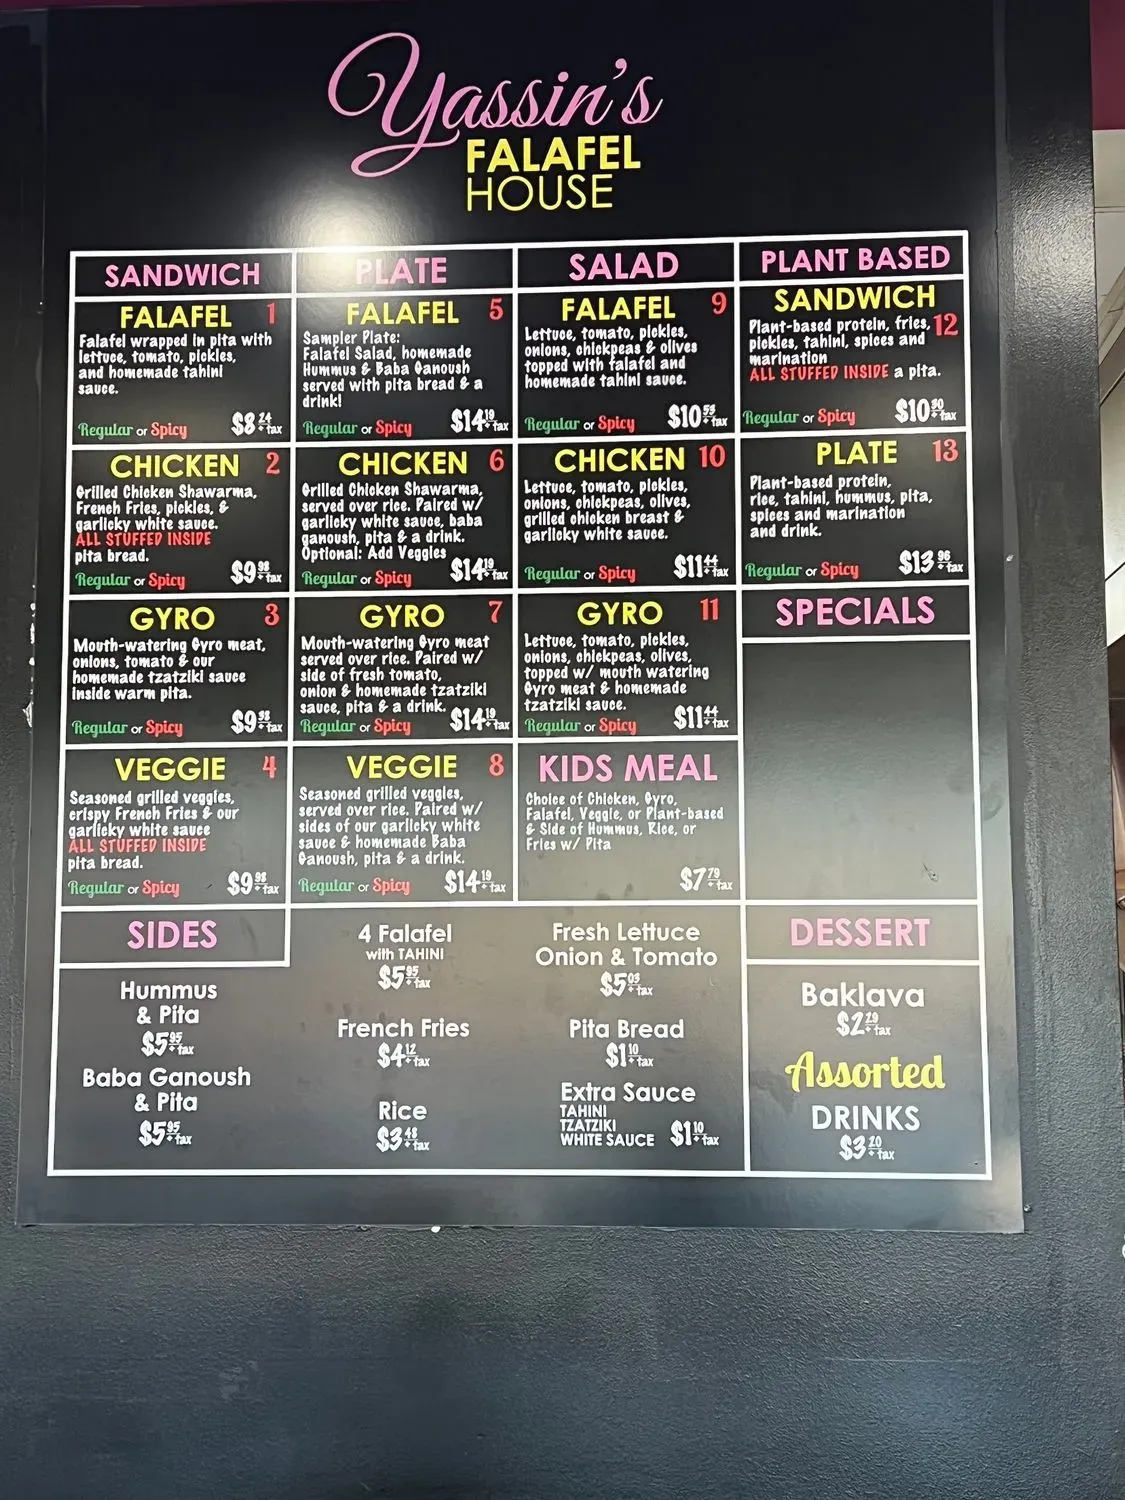 Yassin's
FALAFEL
HOUSE
SANDWICH
FALAFEL 1
Falafel wrapped in pita with
lettuce, tomato, pickles,
and homemade tahini
sauce.
Regular or Spicy $8.24 + tax
CHICKEN 2
Grilled Chicken Shawarma,
French Fries, pickles, &
garlicky white sauce.
ALL STUFFED INSIDE
pita bread.
Regular or Spicy $9.98 + tax
GYRO 3
Mouth-watering Gyro meat,
onions, tomato & our
homemade tzatziki sauce
inside warm pita.
Regular or Spicy $9.98 + tax
VEGGIE 4
Seasoned grilled veggies,
crispy French Fries & our
garlicky white sauce
ALL STUFFED INSIDE
pita bread.
Regular or Spicy $9.98 + tax
PLATE
FALAFEL 5
Sampler Plate:
Falafel Salad, homemade
Hummus & Baba Ganoush
served with pita bread & a
drink!
Regular or Spicy $14.19 + tax
CHICKEN 6
Grilled Chicken Shawarma,
served over rice. Paired w/
garlicky white sauce, baba
ganoush, pita & a drink.
Optional: Add Veggies
Regular or Spicy $14.19 + tax
GYRO 7
Mouth-watering Gyro meat
served over rice. Paired w/
side of fresh tomato,
onion & homemade tzatziki
sauce, pita & a drink.
Regular or Spicy $14.19 + tax
VEGGIE 8
Seasoned grilled veggies,
served over rice. Paired w/
sides of our garlicky white
sauce & homemade Baba
Ganoush, pita & a drink.
Regular or Spicy $14.19 + tax
SALAD
FALAFEL 9
Lettuce, tomato, pickles,
onions, chickpeas & olives
topped with falafel and
homemade tahini sauce.
Regular or Spicy $10.53 + tax
CHICKEN 10
Lettuce, tomato, pickles,
onions, chickpeas, olives,
grilled chicken breast &
garlicky white sauce.
Regular or Spicy $11.44 + tax
GYRO 11
Lettuce, tomato, pickles,
onions, chickpeas, olives,
topped w/ mouth watering
Gyro meat & homemade
tzatziki sauce.
Regular or Spicy $11.44 + tax
KIDS MEAL
Choice of Chicken, Gyro,
Falafel, Veggie, or Plant-based
& Side of Hummus, Rice, or
Fries w/ Pita
$7.79 + tax
PLANT BASED
SANDWICH
Plant-based protein, fries, 12
pickles, tahini, spices and
marination
ALL STUFFED INSIDE a pita.
Regular or Spicy $10.30 + tax
PLATE 13
Plant-based protein,
rice, tahini, hummus, pita,
spices and marination
and drink.
Regular or Spicy $13.96 + tax
SPECIALS
SIDES
Hummus
& Pita
$5.95 + tax
Baba Ganoush
& Pita
$5.95 + tax
4 Falafel
with TAHINI
$5.95 + tax
French Fries
$4.12 + tax
Rice
$3.48 + tax
Fresh Lettuce
Onion & Tomato
$5.03 + tax
Pita Bread
$1.10 + tax
Extra Sauce
TAHINI
TZATZIKI
WHITE SAUCE $1.10 + tax
DESSERT
Baklava
$2.29 + tax
Assorted
DRINKS
$3.20 + tax